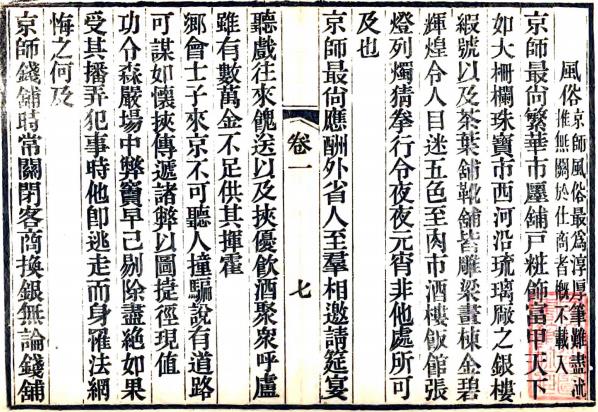 風俗 京師風俗最爲淳厚筆難盡述
推無關於仕商者概不載入
京師最尙繁華市廛舖戸粧飾富甲天下
如大栅欄珠寶市西河沿琉璃厰之銀樓
緞號以及茶葉舖靴舖皆雕梁畫棟金碧
輝煌令人目迷五色至肉市酒樓飯館張
燈列燭猜拳行令夜夜元宵非他處所可
及也
京師最尙應酬外省人至羣相邀請筵宴
聽戲往來餽送以及挾優飮酒聚衆呼盧
雖有數萬金不足供其揮霍
卷一
七
鄕會士子來京不可聽人撞騙說有道路
可謀如懷挾傳遞諸弊以圖捷徑現値
功令森嚴場中弊竇早已剔除盡絶如果
受其播弄犯事時他卽逃走而身罹法網
悔之何及
京師錢舖時常關閉客商換銀無論錢舖